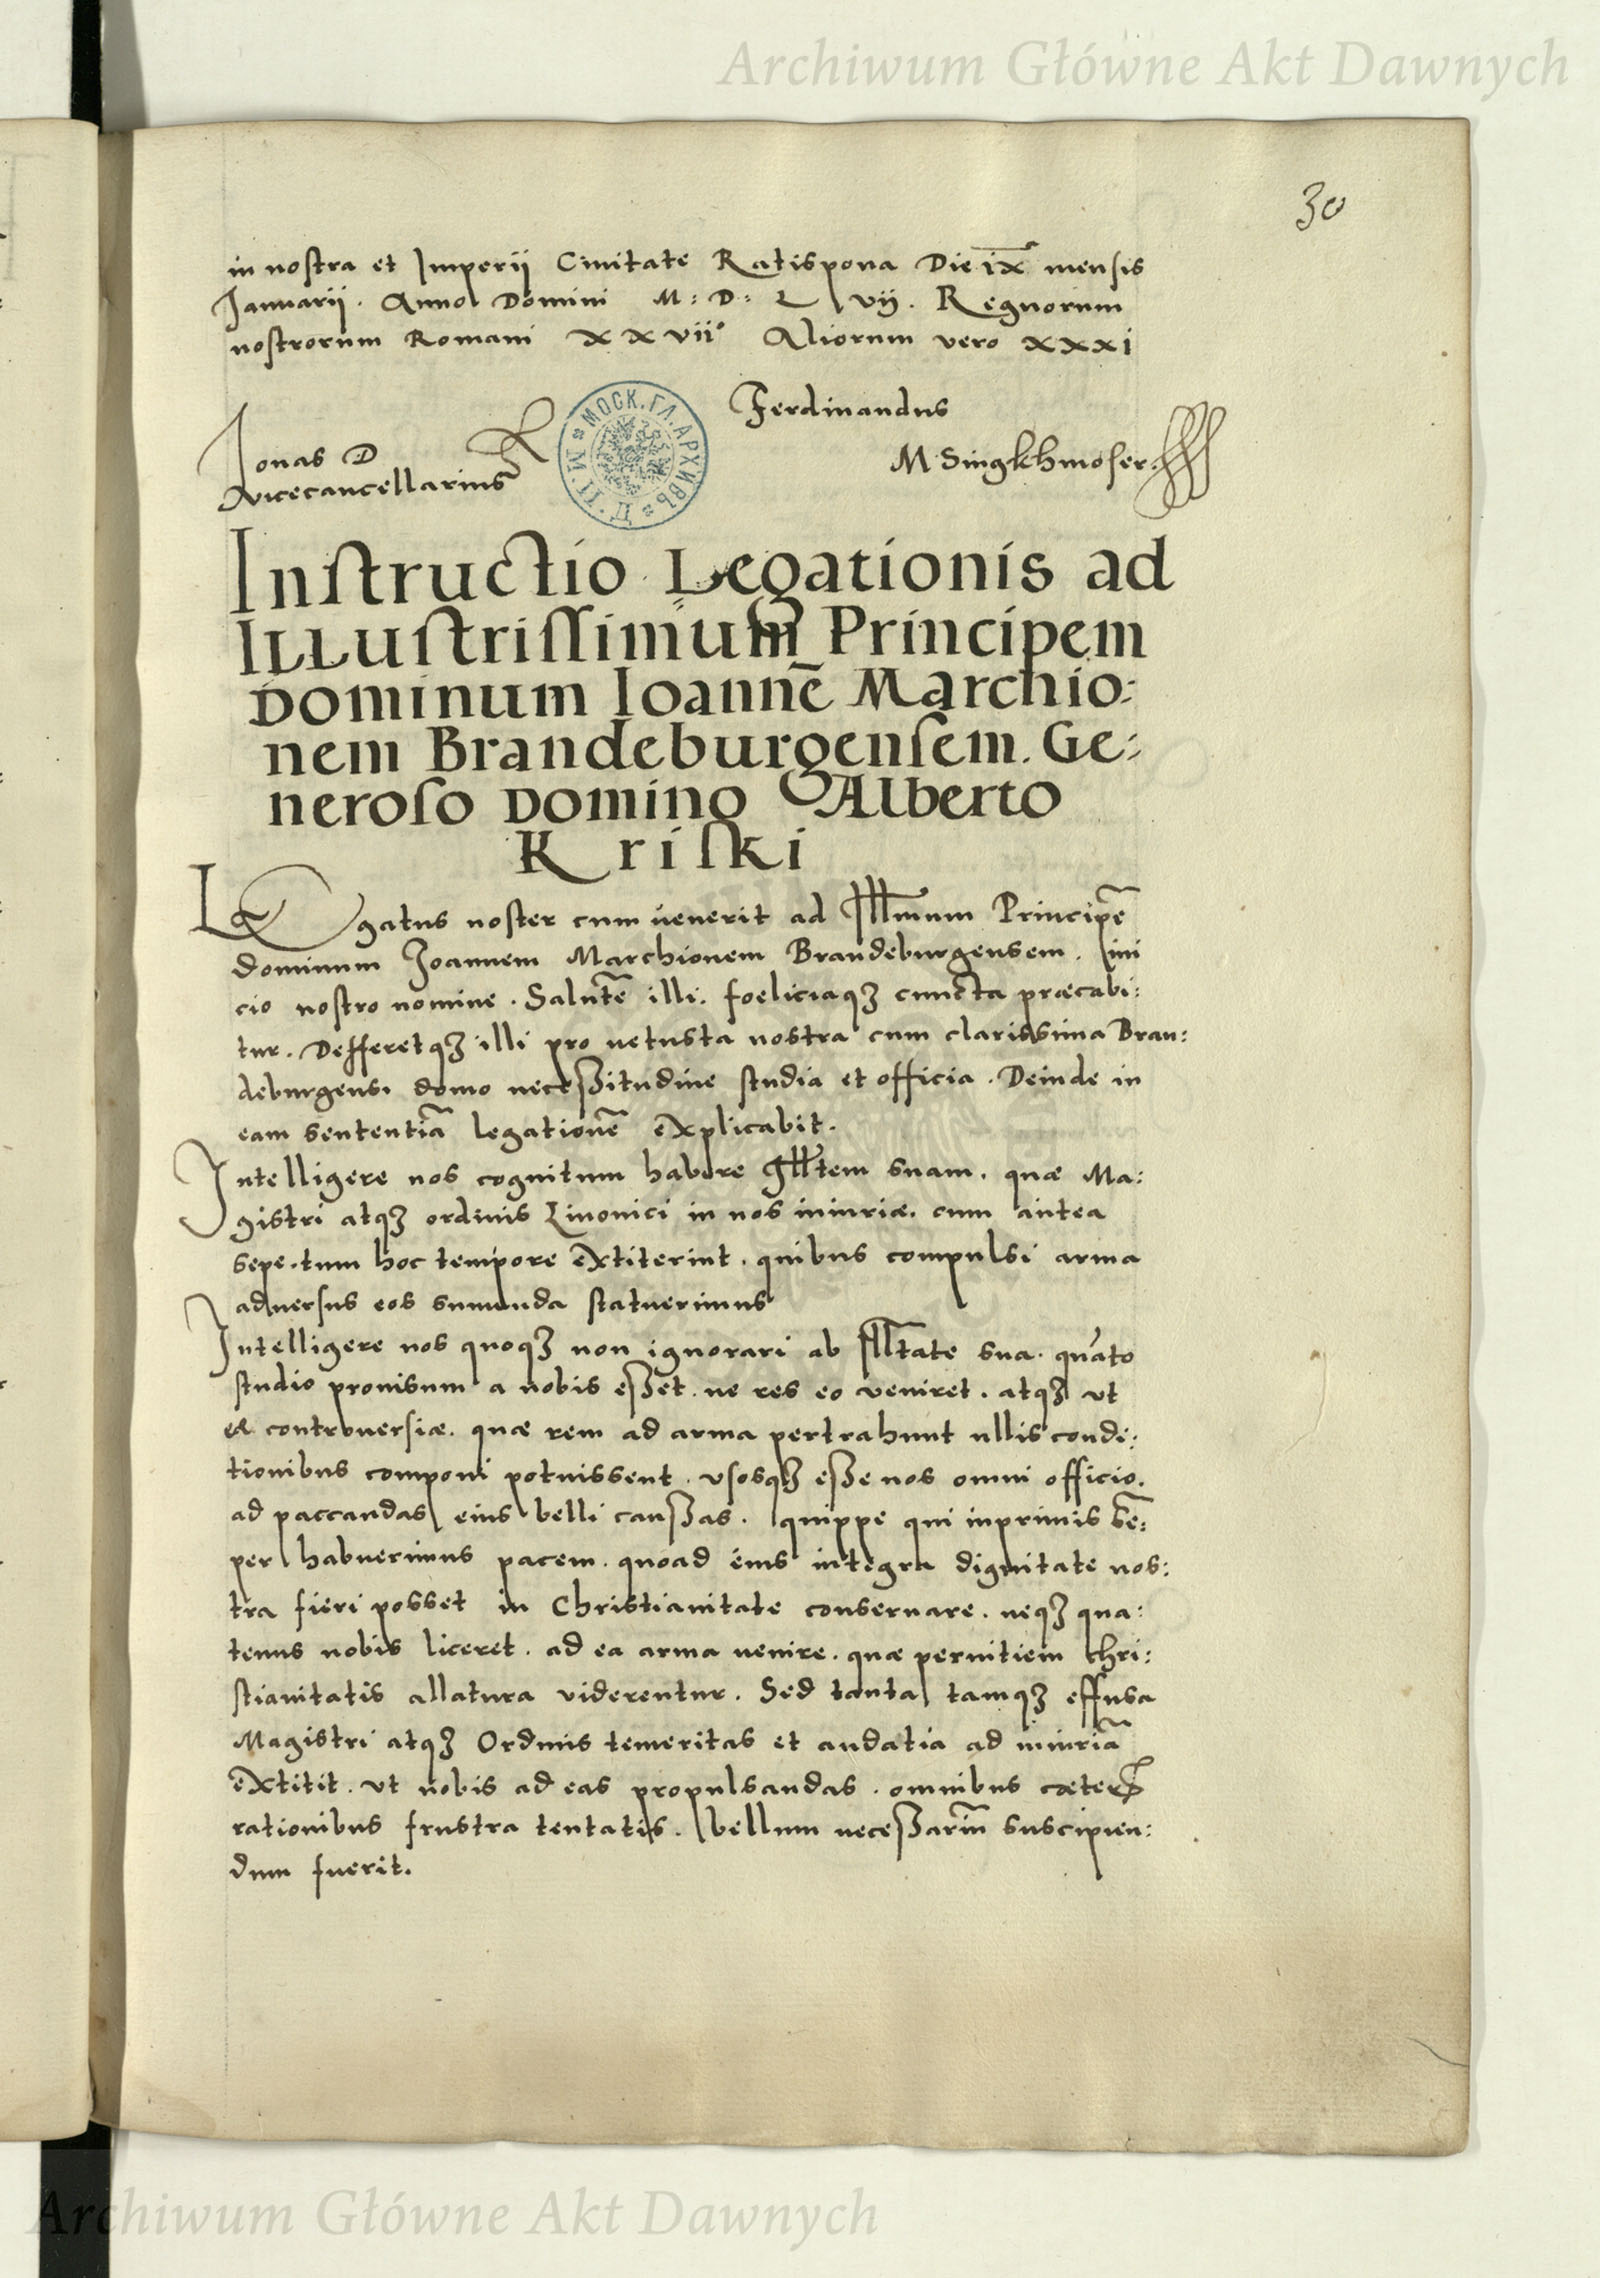 Archiwum Główne Akt Dawnych
30
in nostra et Imperij Ciuitate Ratispona Die ix mensis
Januarij. Anno Domini M: D: L vij. Regnorum
nostrorum Romani XXvii° Aliorum vero xxxi
Ferdinandus
Jonas D
Vicecancellarius
M Singkhmoser
МОСК. ГЛ. АРХИВЪ
Instructio Legationis ad
Illustrissimum Principem
Dominum Ioannē Marchio:
nem Brandeburgensem. Ge:
neroso Domino Alberto
Kriski
Legatus noster cum venerit ad Illmum Principē
dominum Joannem Marchionem Brandeburgensem. ini
cio nostro nomine. Salutē illi. foeliciaqȝ cuncta præcabi:
tur. Defferetqȝ illi pro uetusta nostra cum clarissima Bran:
deburgensi domo necessitudine studia et officia. Deinde in
eam sententiā legationē explicabit.
Intelligere nos cognitum habere Illtem suam. quæ Ma:
gistri atqȝ ordinis Liuonici in nos iniuriæ. cum antea
sepe. tum hoc tempore extiterint. quibus compulsi arma
aduersus eos sumenda statuerimus
Intelligere nos quoqȝ non ignorari ab Illtate sua. quāto
studio prouisum a nobis esset. ne res eo veniret. atqȝ ut
eæ controuersiæ. quæ rem ad arma pertrahunt ullis condi:
tionibus componi potuissent. usosqȝ esse nos omni officio.
ad paccandas eius belli caussas. quippe qui inprimis sē:
per habuerimus pacem. quoad eius integra dignitate nos:
tra fieri posset in Christianitate conseruare. neqȝ qua:
tenus nobis liceret. ad ea arma uenire. quæ pernitiem chri:
stianitatis allatura viderentur. Sed tanta tamqȝ effusa
Magistri atqȝ Ordinis temeritas et audatia ad iniuriā
extitit. ut nobis ad eas propulsandas. omnibus cæteris
rationibus frustra tentatis. bellum necessariū suscipien:
dum fuerit.
Archiwum Główne Akt Dawnych